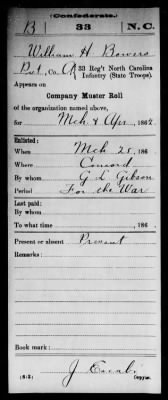 (Confederate.)
B 33 N.C.
William H. Bowers
Pvt, Co. , 33 Reg't North Carolina
Infantry (State Troops).
Appears on
Company Muster Roll
of the organization named above,
for Mch & Apr, 1862
Enlisted:
When Mch 25, 186
Where Concord
By whom G L Gibson
Period For the War
Last paid:
By whom
To what time , 186
Present or absent Present
Remarks:
Book mark:
(642) J
Copyist.